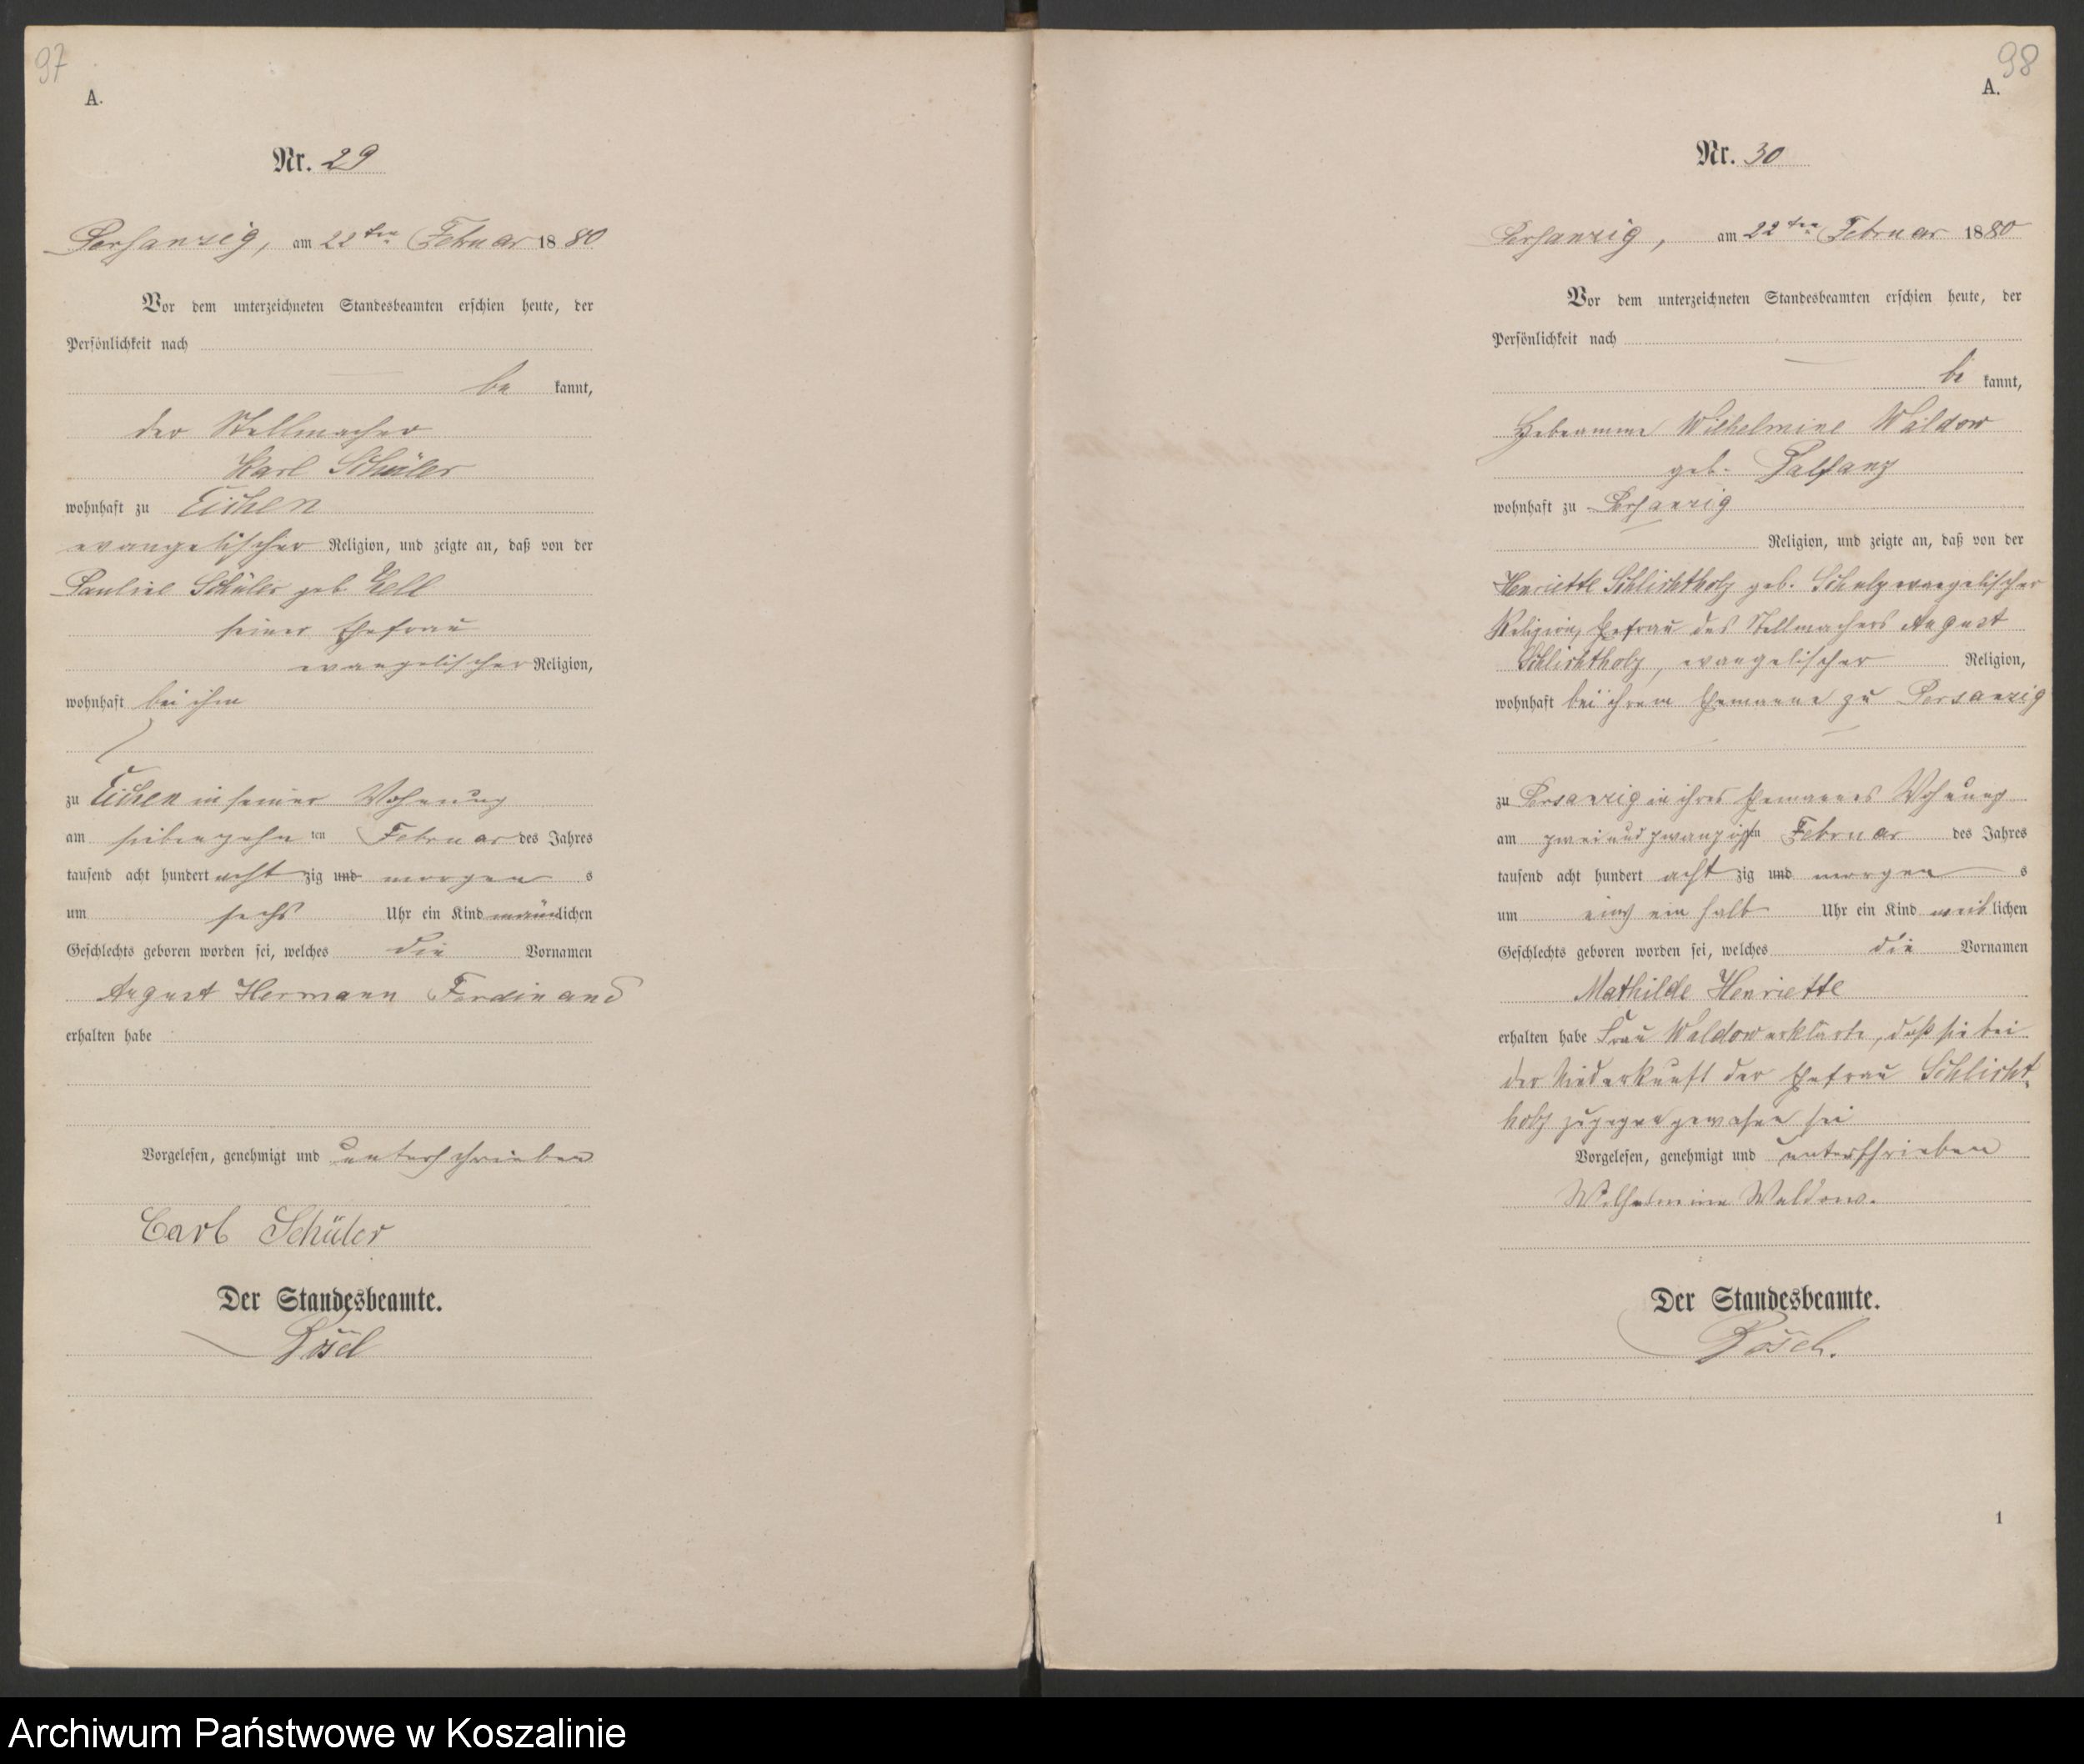 97
A.
Nr. 29
Persanzig, am 22ten Februar 1880
Vor dem unterzeichneten Standesbeamten erschien heute, der
Persönlichkeit nach
be kannt,
der Stellmacher
Karl Schüler
wohnhaft zu Eichen
evangelischer Religion, und zeigte an, daß von der
Pauline Schüler geb.
seiner Ehefrau
evangelischer Religion,
wohnhaft bei ihm
zu Eichen in seiner Wohnung
am siebenzehn ten Februar des Jahres
tausend acht hundert acht zig und morgen s
um sechs Uhr ein Kind männlichen
Geschlechts geboren worden sei, welches die Vornamen
August Hermann Ferdinand
erhalten habe
Vorgelesen, genehmigt und unterschrieben
Carl Schüler
Der Standesbeamte.
98
A.
Nr. 30
Persanzig, am 22ten Februar 1880
Vor dem unterzeichneten Standesbeamten erschien heute, der
Persönlichkeit nach
be kannt,
Hebeamme Wilhelmine Waldow
geb.
wohnhaft zu Persanzig
Religion, und zeigte an, daß von der
Henriette Schlichtholz geb. Schulz evangelischer
Religion, Ehefrau des Stellmachers August
Schlichtholz, evangelischer Religion,
wohnhaft bei ihrem Ehemanne zu Persanzig
zu Persanzig in ihres Ehemannes Wohnung
am zwei und zwanzigsten Februar des Jahres
tausend acht hundert acht zig und morgen s
um ein halb Uhr ein Kind weiblichen
Geschlechts geboren worden sei, welches die Vornamen
Mathilde Henriette
erhalten habe Frau Waldow erklärte, daß sie bei
der Niederkunft der Ehefrau Schlicht-
holz zugegen gewesen sei
Vorgelesen, genehmigt und unterschrieben
Wilhelmine Waldow.
Der Standesbeamte.
1
Archiwum Państwowe w Koszalinie